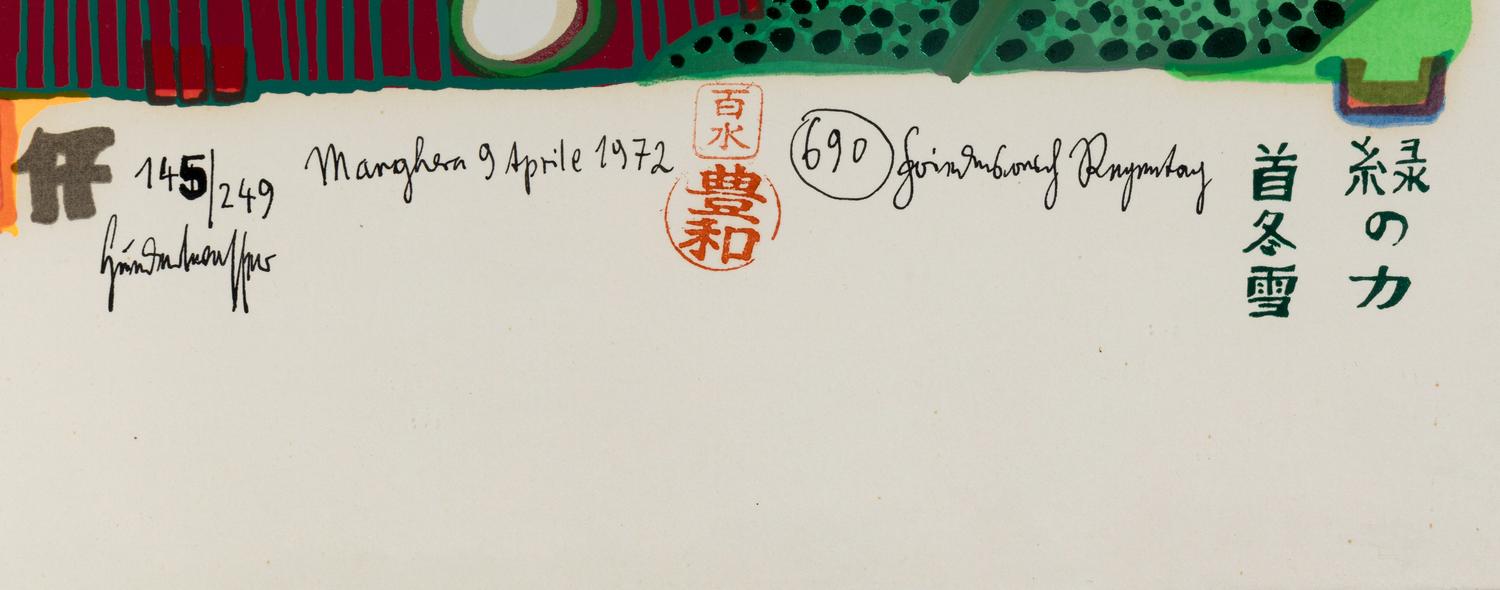 145/249
Hundertwasser
Marghera 9 Aprile 1972
百水
豊和
690
Friedensreich Regentag
緑の力
首冬雪